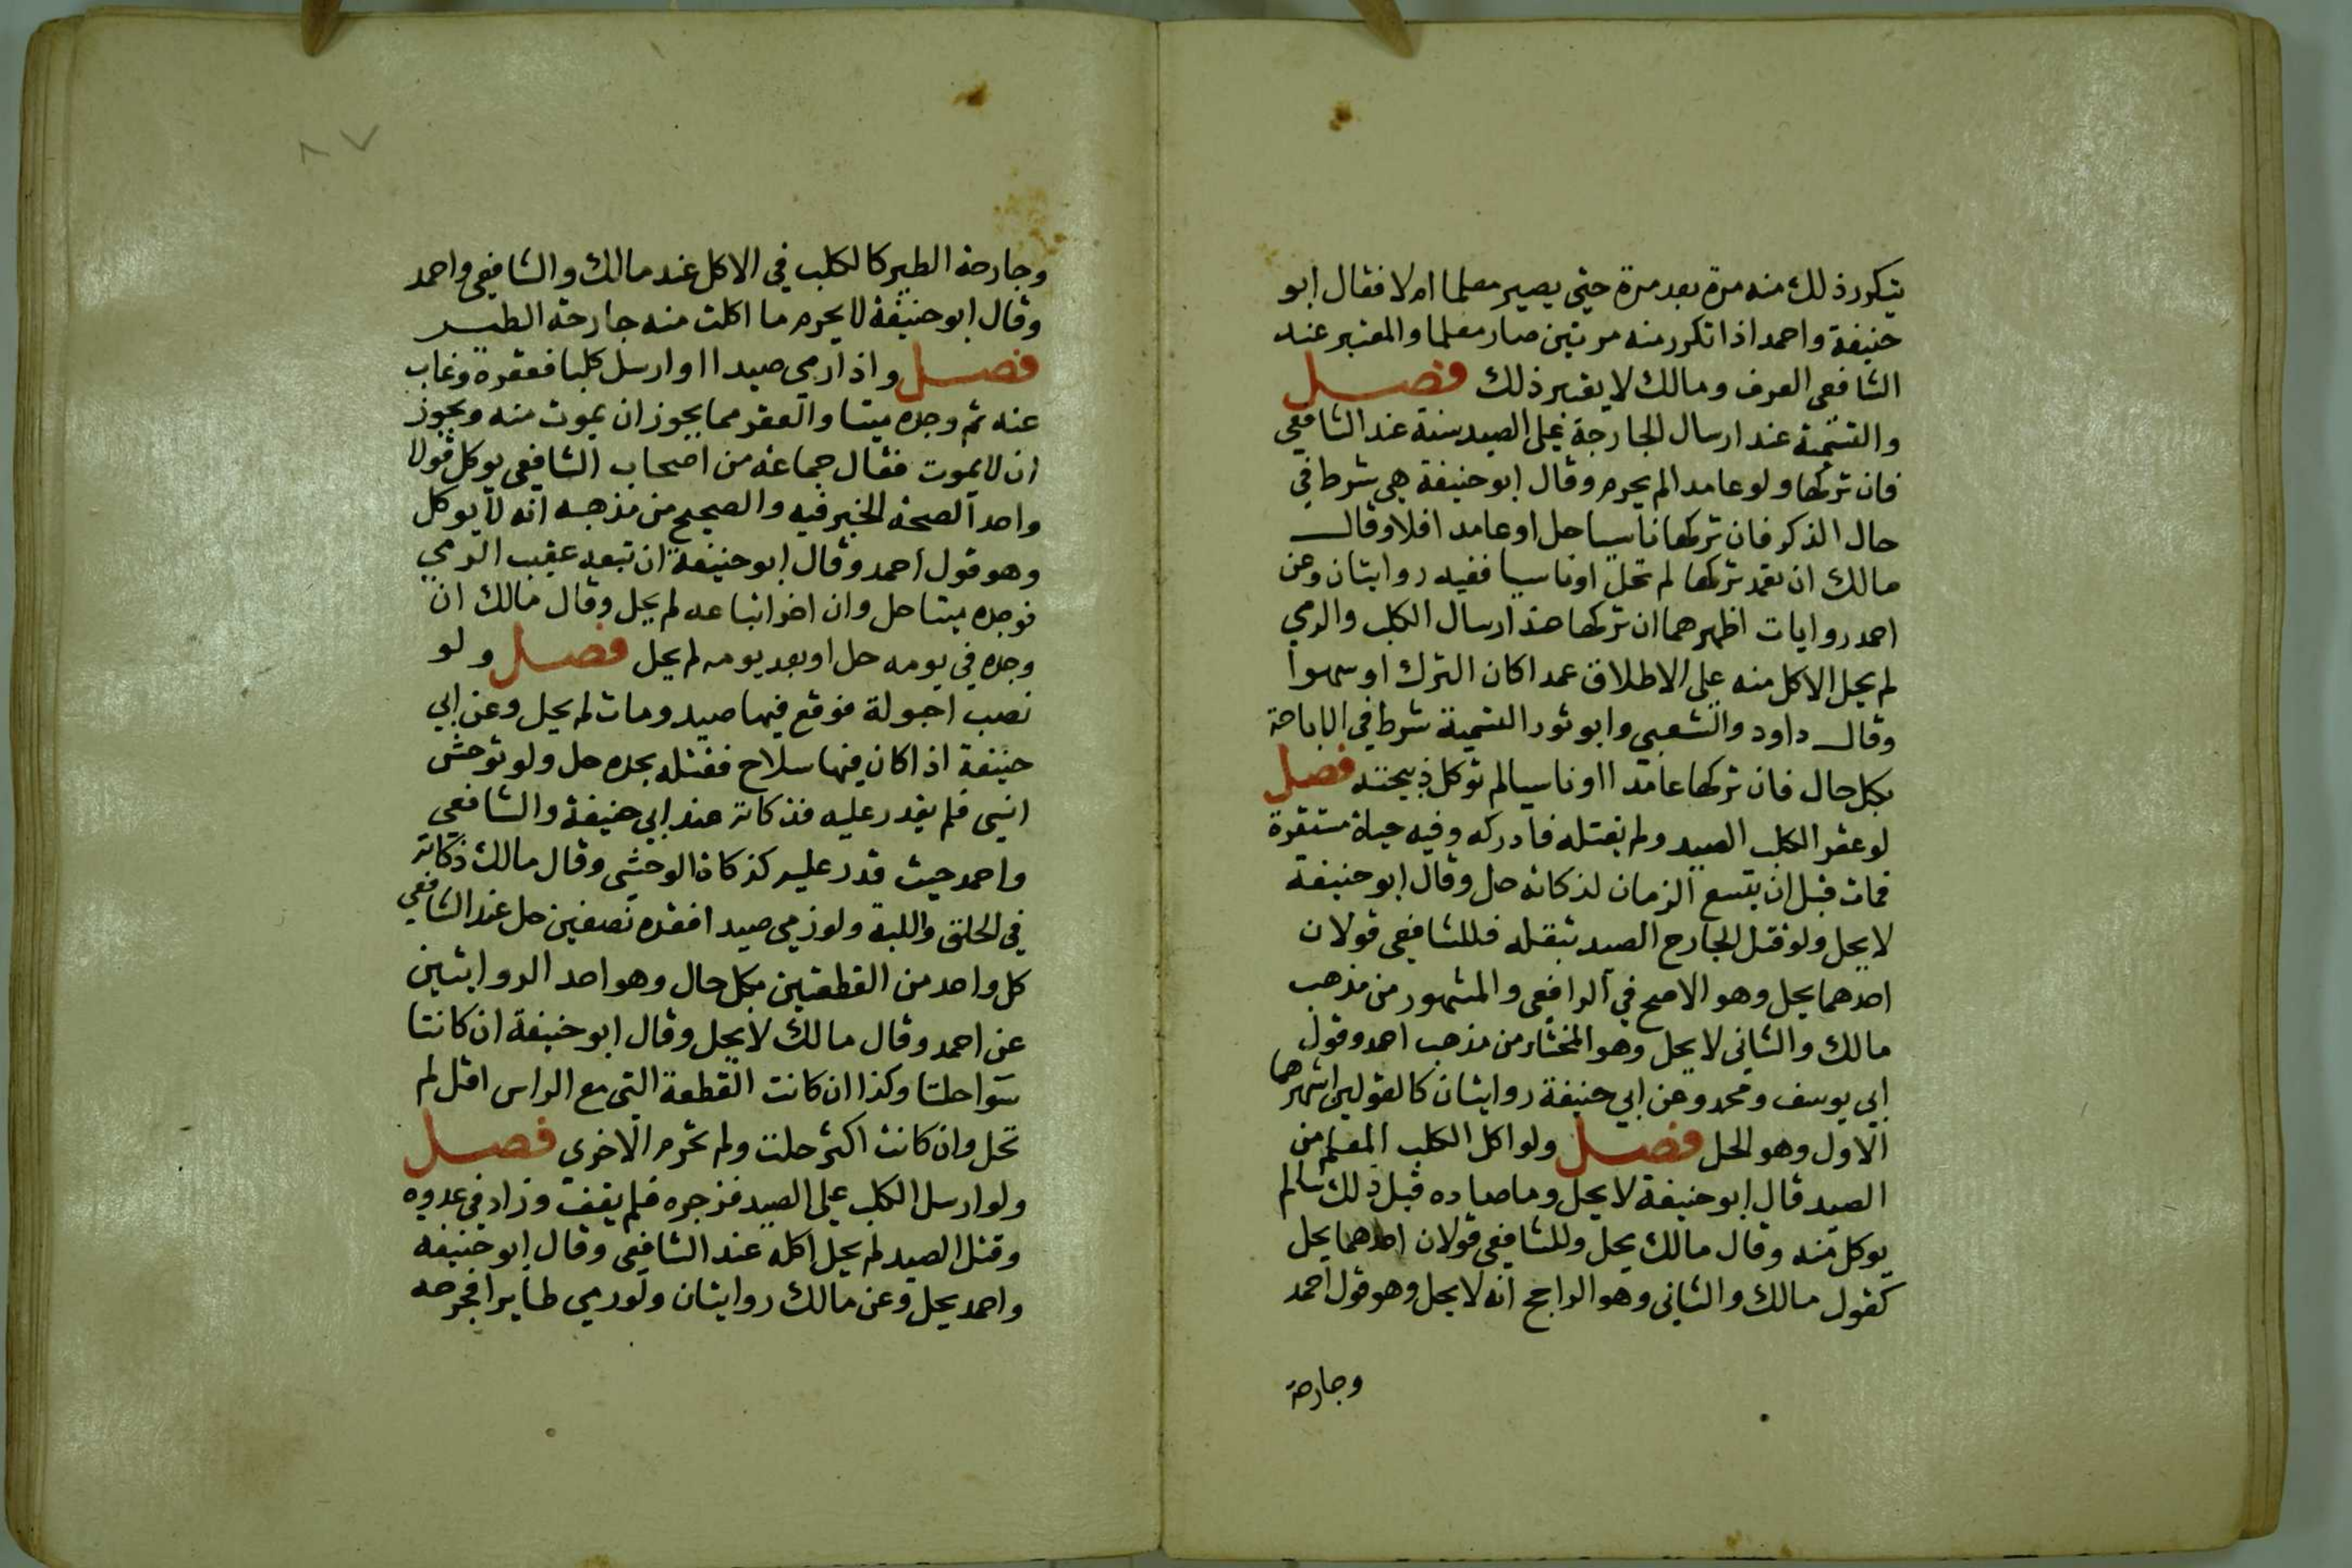 يتكرر ذلك منه مرة بعد مرة حتى يصير معلما ام لا فقال ابو
حنيفة واحمد اذا تكرر منه مرتين صار معلما والمعتبر عند
الشافعى العرف ومالك لا يعتبر ذلك فصل
والتسمية عند ارسال الجارحة على الصيد سنة عند الشافعي
فان تركها ولو عامدا لم يحرم وقال ابو حنيفة هي شرط في
حال الذكر فان تركها ناسيا حل او عامدا فلا وقال
مالك ان تعمد تركها لم تحل او ناسيا ففيه روايتان وعن
احمد روايات اظهرهما ان تركها عند ارسال الكلب والرمي
لم يحل الاكل منه على الاطلاق عمدا كان الترك او سهوا
وقال داود والشعبي وابو ثور التسمية شرط في الاباحة
بكل حال فان تركها عامدا او ناسيا لم توكل ذبيحته فصل
لو عقر الكلب الصيد ولم يقتله فادركه وفيه حياة مستقرة
فمات قبل ان يتسع الزمان لذكاته حل وقال ابو حنيفة
لا يحل ولو قتل الجارح الصيد بثقله فللشافعى قولان
احدهما يحل وهو الاصح في الرافعى والمشهور من مذهب
مالك والثانى لا يحل وهو المختار من مذهب احمد وقول
ابي يوسف ومحمد وعن ابي حنيفة روايتان كالقولين اشهرهما
الاول وهو الحل فصل ولو اكل الكلب المعلم من
الصيد قال ابو حنيفة لا يحل وما صاده قبل ذلك مما لم
يوكل منه وقال مالك يحل وللشافعى قولان احدهما يحل
كقول مالك والثانى وهو الراجح انه لا يحل وهو قول احمد
وجارحة
٨٧
وجارحة الطير كالكلب في الاكل عند مالك والشافعى واحمد
وقال ابو حنيفة لا يحرم ما اكلت منه جارحة الطير
فصل واذا رمى صيدا او ارسل كلبا فعقره وغاب
عنه ثم وجده ميتا والعقر مما يجوز ان يموت منه ويجوز
ان لا يموت فقال جماعة من اصحاب الشافعى يوكل قولا
واحدا لصحة الخبر فيه والصحيح من مذهبه انه لا يوكل
وهو قول احمد وقال ابو حنيفة ان تبعه عقيب الرمي
فوجده ميتا حل وان اخر اتباعه لم يحل وقال مالك ان
وجده في يومه حل او بعد يومه لم يحل فصل ولو
نصب احبولة فوقع فيها صيد ومات لم يحل وعن ابي
حنيفة اذا كان فيها سلاح فقتله بحده حل ولو توحش
انسي فلم يقدر عليه فذكاته عند ابي حنيفة والشافعى
واحمد حيث قدر عليه كذكاة الوحشي وقال مالك ذكاته
في الحلق واللبة ولو رمى صيدا فقده نصفين حل عند الشافعي
كل واحد من القطعتين بكل حال وهو احد الروايتين
عن احمد وقال مالك لا يحل وقال ابو حنيفة ان كانتا
سوا حلتا وكذا ان كانت القطعة التى مع الراس اقل لم
تحل وان كانت اكثر حلت ولم تحرم الاخرى فصل
ولو ارسل الكلب على الصيد فزجره فلم يقف وزاد في عدوه
وقتل الصيد لم يحل اكله عند الشافعى وقال ابو حنيفه
واحمد يحل وعن مالك روايتان ولو رمى طايرا فجرحه